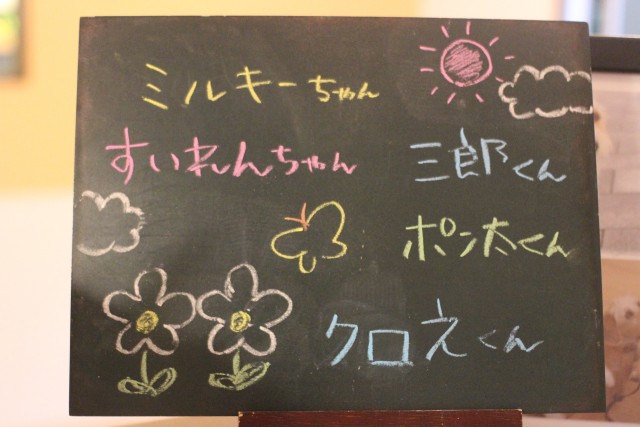 ミルキーちゃん
すいれんちゃん
三郎くん
ポン太くん
クロえくん